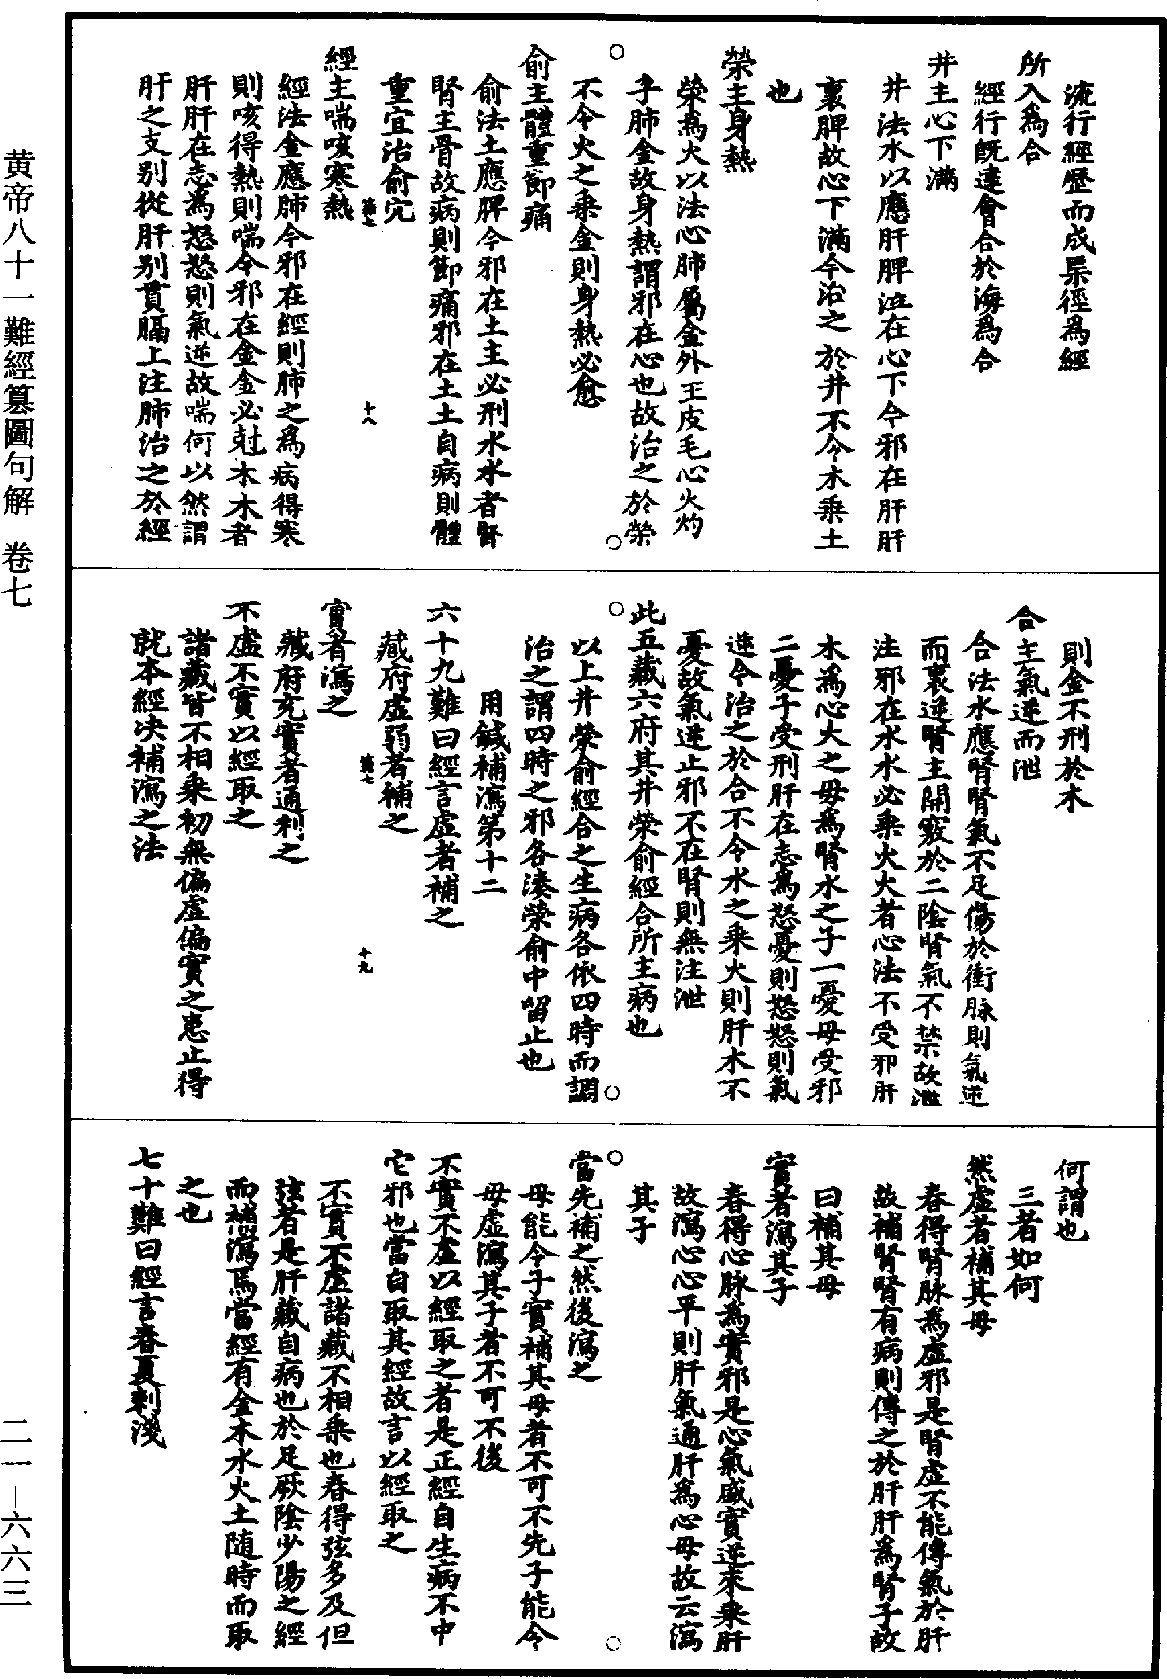 流行經歷而成渠徑爲經
所入爲合
經行既達會合於海爲合
井主心下滿
井法水以應肝脾泣在心下今邪在肝肝
裏脾故心下滿今治之於井不令木乘土
也
榮主身熱
榮爲火以法心肺屬金外王皮毛心火灼
于肺金故身熱謂邪在心也故治之於榮
不令火之乘金則身熱必愈
俞主體重節痛
俞法土應脾今邪在土土必刑水水者腎
腎主骨故病則節痛邪在土土自病則體
重宜治俞穴
第七
十八
經主喘咳寒熱
經法金應肺今邪在經則肺之爲病得寒
則咳得熱則喘今邪在金金必尅木木者
肝肝在志爲怒怒則氣逆故喘何以然謂
肝之支別從肝別貫膈上注肺治之於經
則金不刑於木
合主氣逆而泄
合法水應腎腎氣不足傷於衝脉則氣逆
而裏逆腎主開竅於二陰腎氣不禁故泄
注邪在水水必乘火火者心法不受邪肝
木爲心火之母爲腎水之子一憂母受邪
二憂子受刑肝在志爲怒憂則怒怒則氣
逆今治之於合不令水之乘火則肝木不
憂故氣逆止邪不在腎則無注泄
此五藏六府其井榮俞經合所主病也
以上井榮俞經合之生病各依四時而調
治之謂四時之邪各湊榮俞中留止也
用鍼補瀉第十二
六十九難曰經言虛者補之
藏府虛弱者補之
第七
十九
實者瀉之
藏府充實者通利之
不虛不實以經取之
諸藏皆不相乘初無偏虛偏實之患止得
就本經决補瀉之法
何謂也
三者如何
然虛者補其母
春得腎脉爲虛邪是腎虛不能傳氣於肝
故補腎腎有病則傳之於肝肝爲腎子故
曰補其母
實者瀉其子
春得心脉爲實邪是心氣盛實逆來乘肝
故瀉心心平則肝氣通肝爲心母故云瀉
其子
當先補之然後瀉之
母能令子實補其母者不可不先子能令
母虛瀉其子者不可不後
不實不虛以經取之者是正經自生病不中
它邪也當自取其經故言以經取之
不實不虛諸藏不相乘也春得弦多及但
弦者是肝藏自病也於足厥陰少陽之經
而補瀉焉當經有金木水火土隨時而取
之也
七十難曰經言春夏刺淺
黃帝八十一難經纂圖句解　卷七
二一－六六三